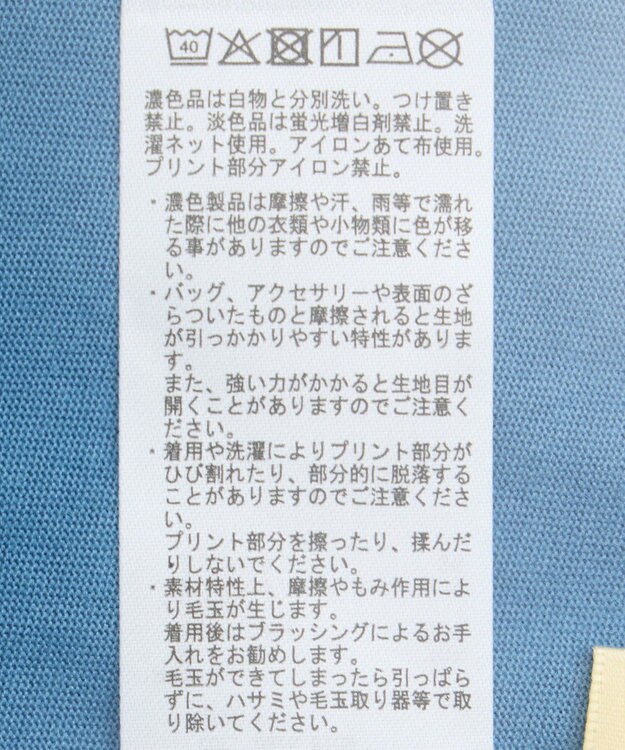 40
濃色品は白物と分別洗い。つけ置き
禁止。淡色品は蛍光増白剤禁止。洗
濯ネット使用。アイロンあて布使用。
プリント部分アイロン禁止。
・濃色製品は摩擦や汗、雨等で濡れ
た際に他の衣類や小物類に色が移
る事がありますのでご注意くださ
い。
・バッグ、アクセサリーや表面のざ
らついたものと摩擦されると生地
が引っかかりやすい特性がありま
す。
また、強い力がかかると生地目が
開くことがありますのでご注意く
ださい。
・着用や洗濯によりプリント部分が
ひび割れたり、部分的に脱落する
ことがありますのでご注意くださ
い。
プリント部分を擦ったり、揉んだ
りしないでください。
・素材特性上、摩擦やもみ作用によ
り毛玉が生じます。
着用後はブラッシングによるお手
入れをお勧めします。
毛玉ができてしまったら引っぱら
ずに、ハサミや毛玉取り器等で取
り除いてください。